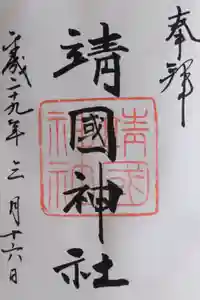 奉拝
靖國神社
平成二十九年三月十六日
靖國神社